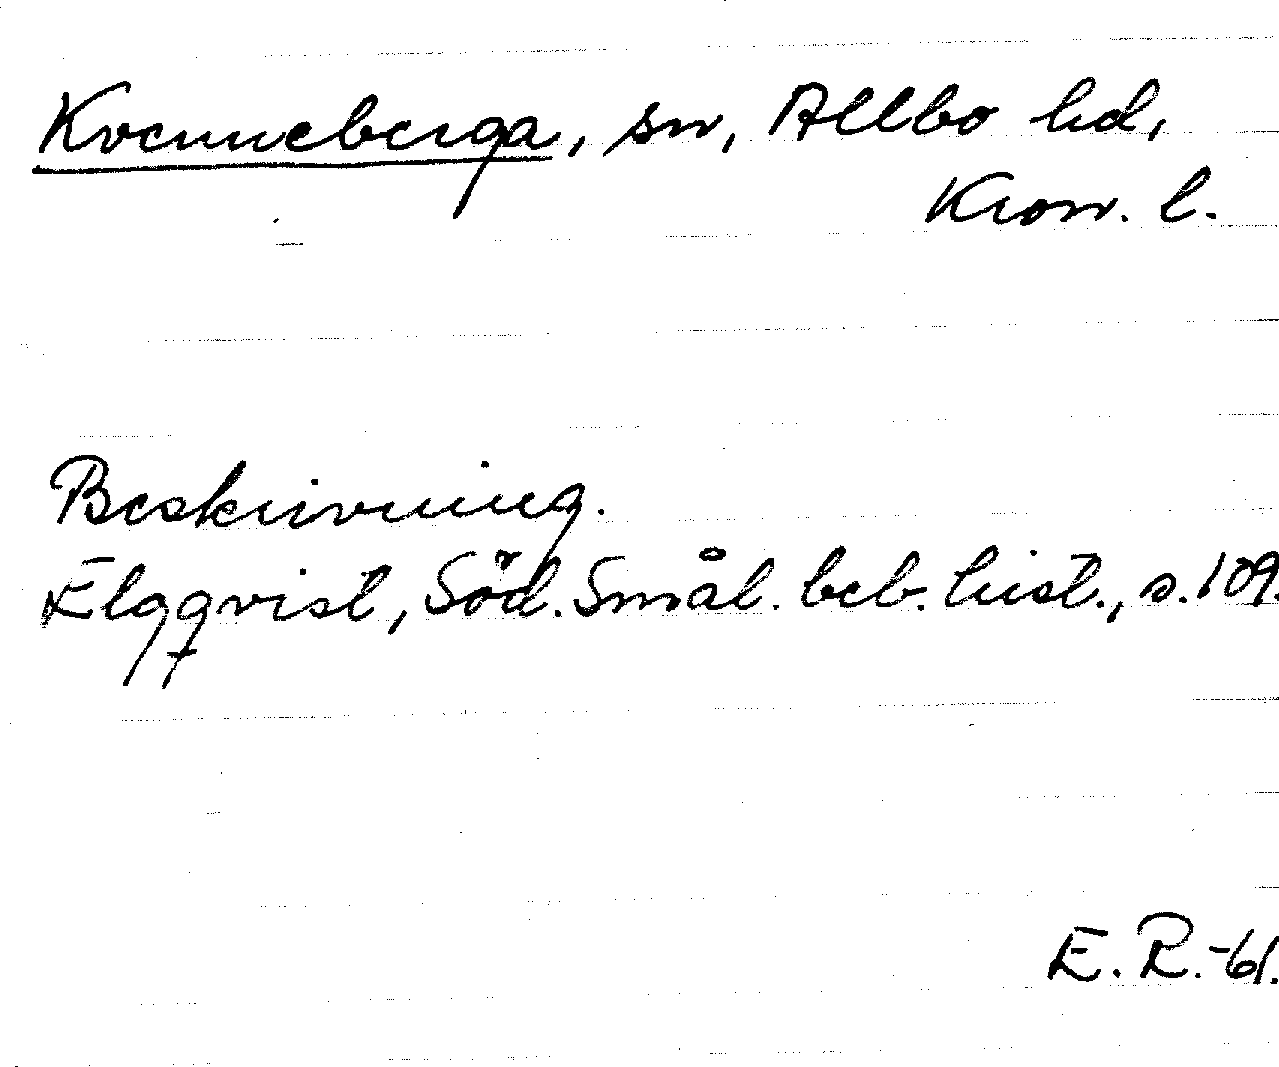 Kvenneberga, sn, Allbo hd,
Kron. l.
Beskrivning.
Elgqvist, Söd. Smål. beb. hist., s. 109.
E. R. -61.